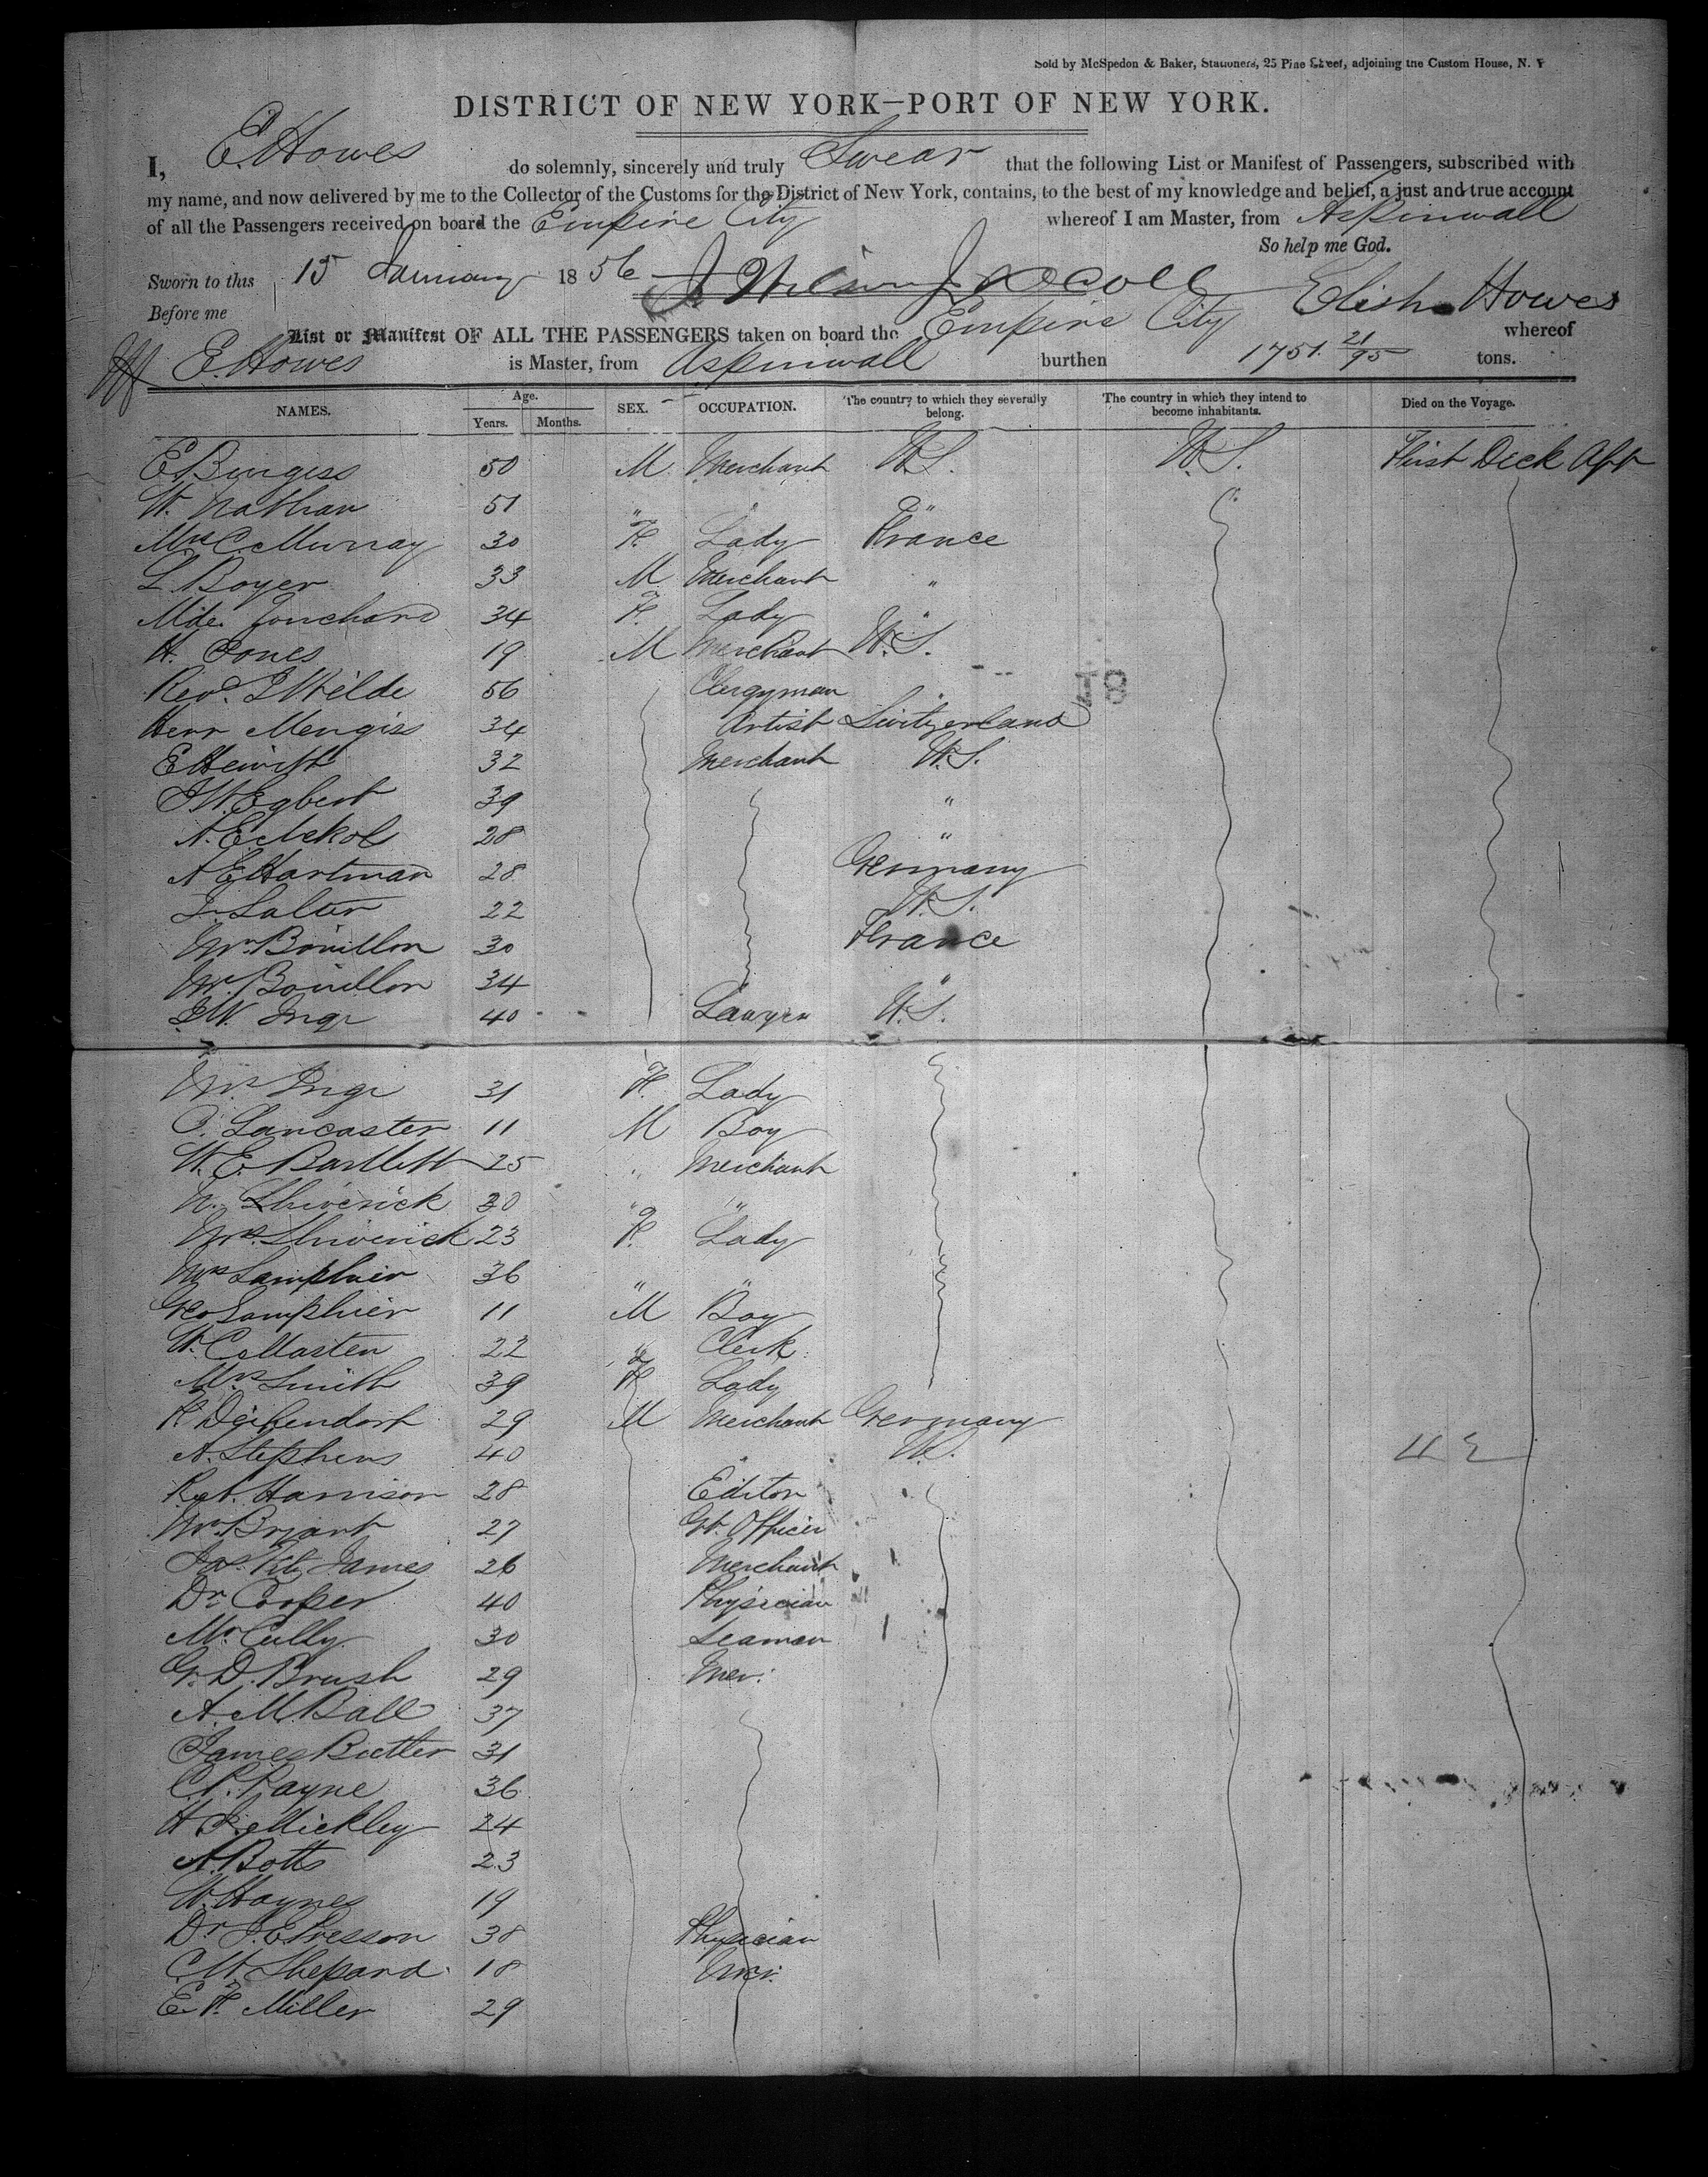 Sold by McSpedon & Baker, Stationers, 25 Pine Street, adjoining the Custom House, N. Y
DISTRICT OF NEW YORK—PORT OF NEW YORK.
I, E Howes do solemnly, sincerely and truly Swear that the following List or Manifest of Passengers, subscribed with
my name, and now delivered by me to the Collector of the Customs for the District of New York, contains, to the best of my knowledge and belief, a just and true account
of all the Passengers received on board the Empire City whereof I am Master, from Aspinwall
So help me God.
Sworn to this 15 January 1856
Before me Elisha Howes
List or Manifest OF ALL THE PASSENGERS taken on board the Empire City whereof
E. Howes is Master, from Aspinwall burthen 1751. 21/95 tons.
NAMES. Age. Years. Months. SEX. OCCUPATION. The country to which they severally belong. The country in which they intend to become inhabitants. Died on the Voyage.
E Burgess 50 M Merchant U.S. U.S. First Deck Aft
W. Nathan 51 " " "
Mrs C. Murray 30 F. Lady France
L. Boyer 33 M Merchant "
Mde. Jouchard 34 F. Lady "
H. Jones 19 M Merchant U.S.
Revd. J Wilde 56 Clergyman
78
Herr Mengis 34 Artist Switzerland
E Hewitt 32 Merchant U.S.
J.W. Egbert 39 "
A. E. Nekols 28 "
A E Hartman 28 Germany
J. Salter 22 U.S.
Mr. Bouillon 30 France
Mr. Bouillon 34 "
S.W. Inge 40 Lawyer U.S.
Mrs. Inge 31 F. Lady
O. Lancaster 11 M Boy
W. E. Bartlett 25 " Merchant
W. Shiverick 30 " "
Mrs. Shiverick 23 F. Lady
Mrs Lamphier 36 " "
Geo Lamphier 11 M Boy
W. C. Masten 22 " Clerk
Mrs Smith 39 F Lady
F Degendorf 29 M Merchant Germany
A. Stephens 40 " U.S.
Robt. Harrison 28 Editor
Mr. Bryant 27 Gt. Officer
Jas. Fitz James 26 Merchant
Dr. Cooper 40 Physician
Mr Cully 30 Seaman
G. D. Brush 29 Mer:
A. M. Ball 37
James Butler 31
C. P. Payne 36
H. K. Mickley 24
A. Botts 23
W. Haynes 19
Dr. J. E. Presson 38 Physician
C. W. Shepard 18 Mer:
E. F. Miller 29